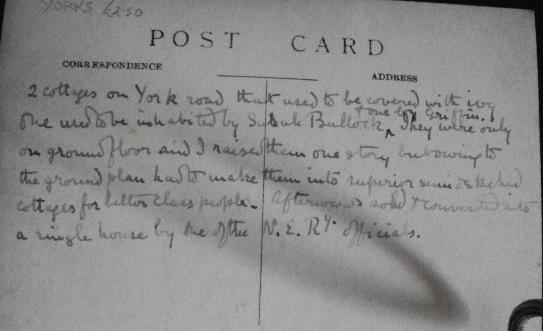 YORKS £2.50
POST CARD
CORRESPONDENCE
ADDRESS
2 cottages on York road that used to be covered with ivy
& one by Griffin.
One used to be inhabited by Bullock, They were only
on ground floor and I raised them one story but owing to
the ground plan had to make them into superior semi detached
cottages for better class people. Afterwards sold & converted into
a single house by one of the N. E. Ry. officials.